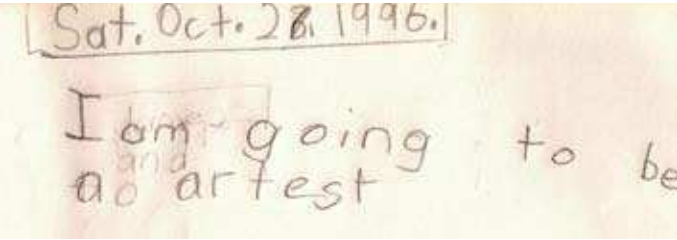 Sat. Oct. 26. 1996.
I am going to be
a artest